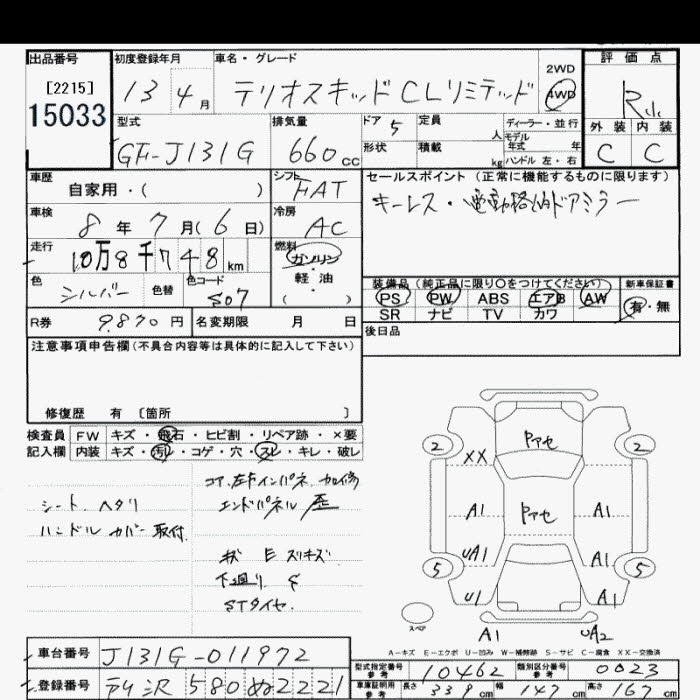 出品番号 初度登録年月 車名・グレード 評価点
[2215]
15033
13 4月 テリオスキッド CLリミテッド 2WD 4WD R
型式 排気量 ドア 定員 人 ディーラー・並行 外装 内装
GF-J131G 660cc 5 形状 積載 kg モデル年式 年 ハンドル 左・右 C C
車歴 シフト セールスポイント(正常に機能するものに限ります)
自家用・( ) FAT キーレス・電動格納ドアミラー
車検 8年7月(6日) 冷房 AC
走行 10万8千748km 燃料 ガソリン・軽油・( )
色 シルバー 色替 色コード S07
装備品(純正品に限り〇をつけてください) 新車保証書
PS PW ABS エアB AW 有・無
SR ナビ TV カワ
R券 9.870円 名変期限 月 日 後日品
注意事項申告欄(不具合内容等は具体的に記入して下さい)
修復歴 有 〔箇所 〕
検査員 FW キズ・飛石・ヒビ割・リペア跡・×要
記入欄 内装 キズ・汚レ・コゲ・穴・スレ・キレ・破レ
シート ヘタリ
ハンドル カバー 取付
コア、左右インパネ 加修
エンドパネル 歪
キズ E スリキズ
下廻り S
STタイヤ
2 Pアセ 2
XX
A1 Pアセ A1
UA1 A1
5 5
U1 A1
スペア A1 UA2
A-キズ E-エクボ U-凹み W-補修跡 S-サビ C-腐食 XX-交換済
車台番号 J131G-011972
型式指定番号 参考 10462 類別区分番号 参考 0023
登録番号 所沢 580 ぬ 2221
車庫証明用 参考 長さ 339cm 幅 147cm 高さ 167cm